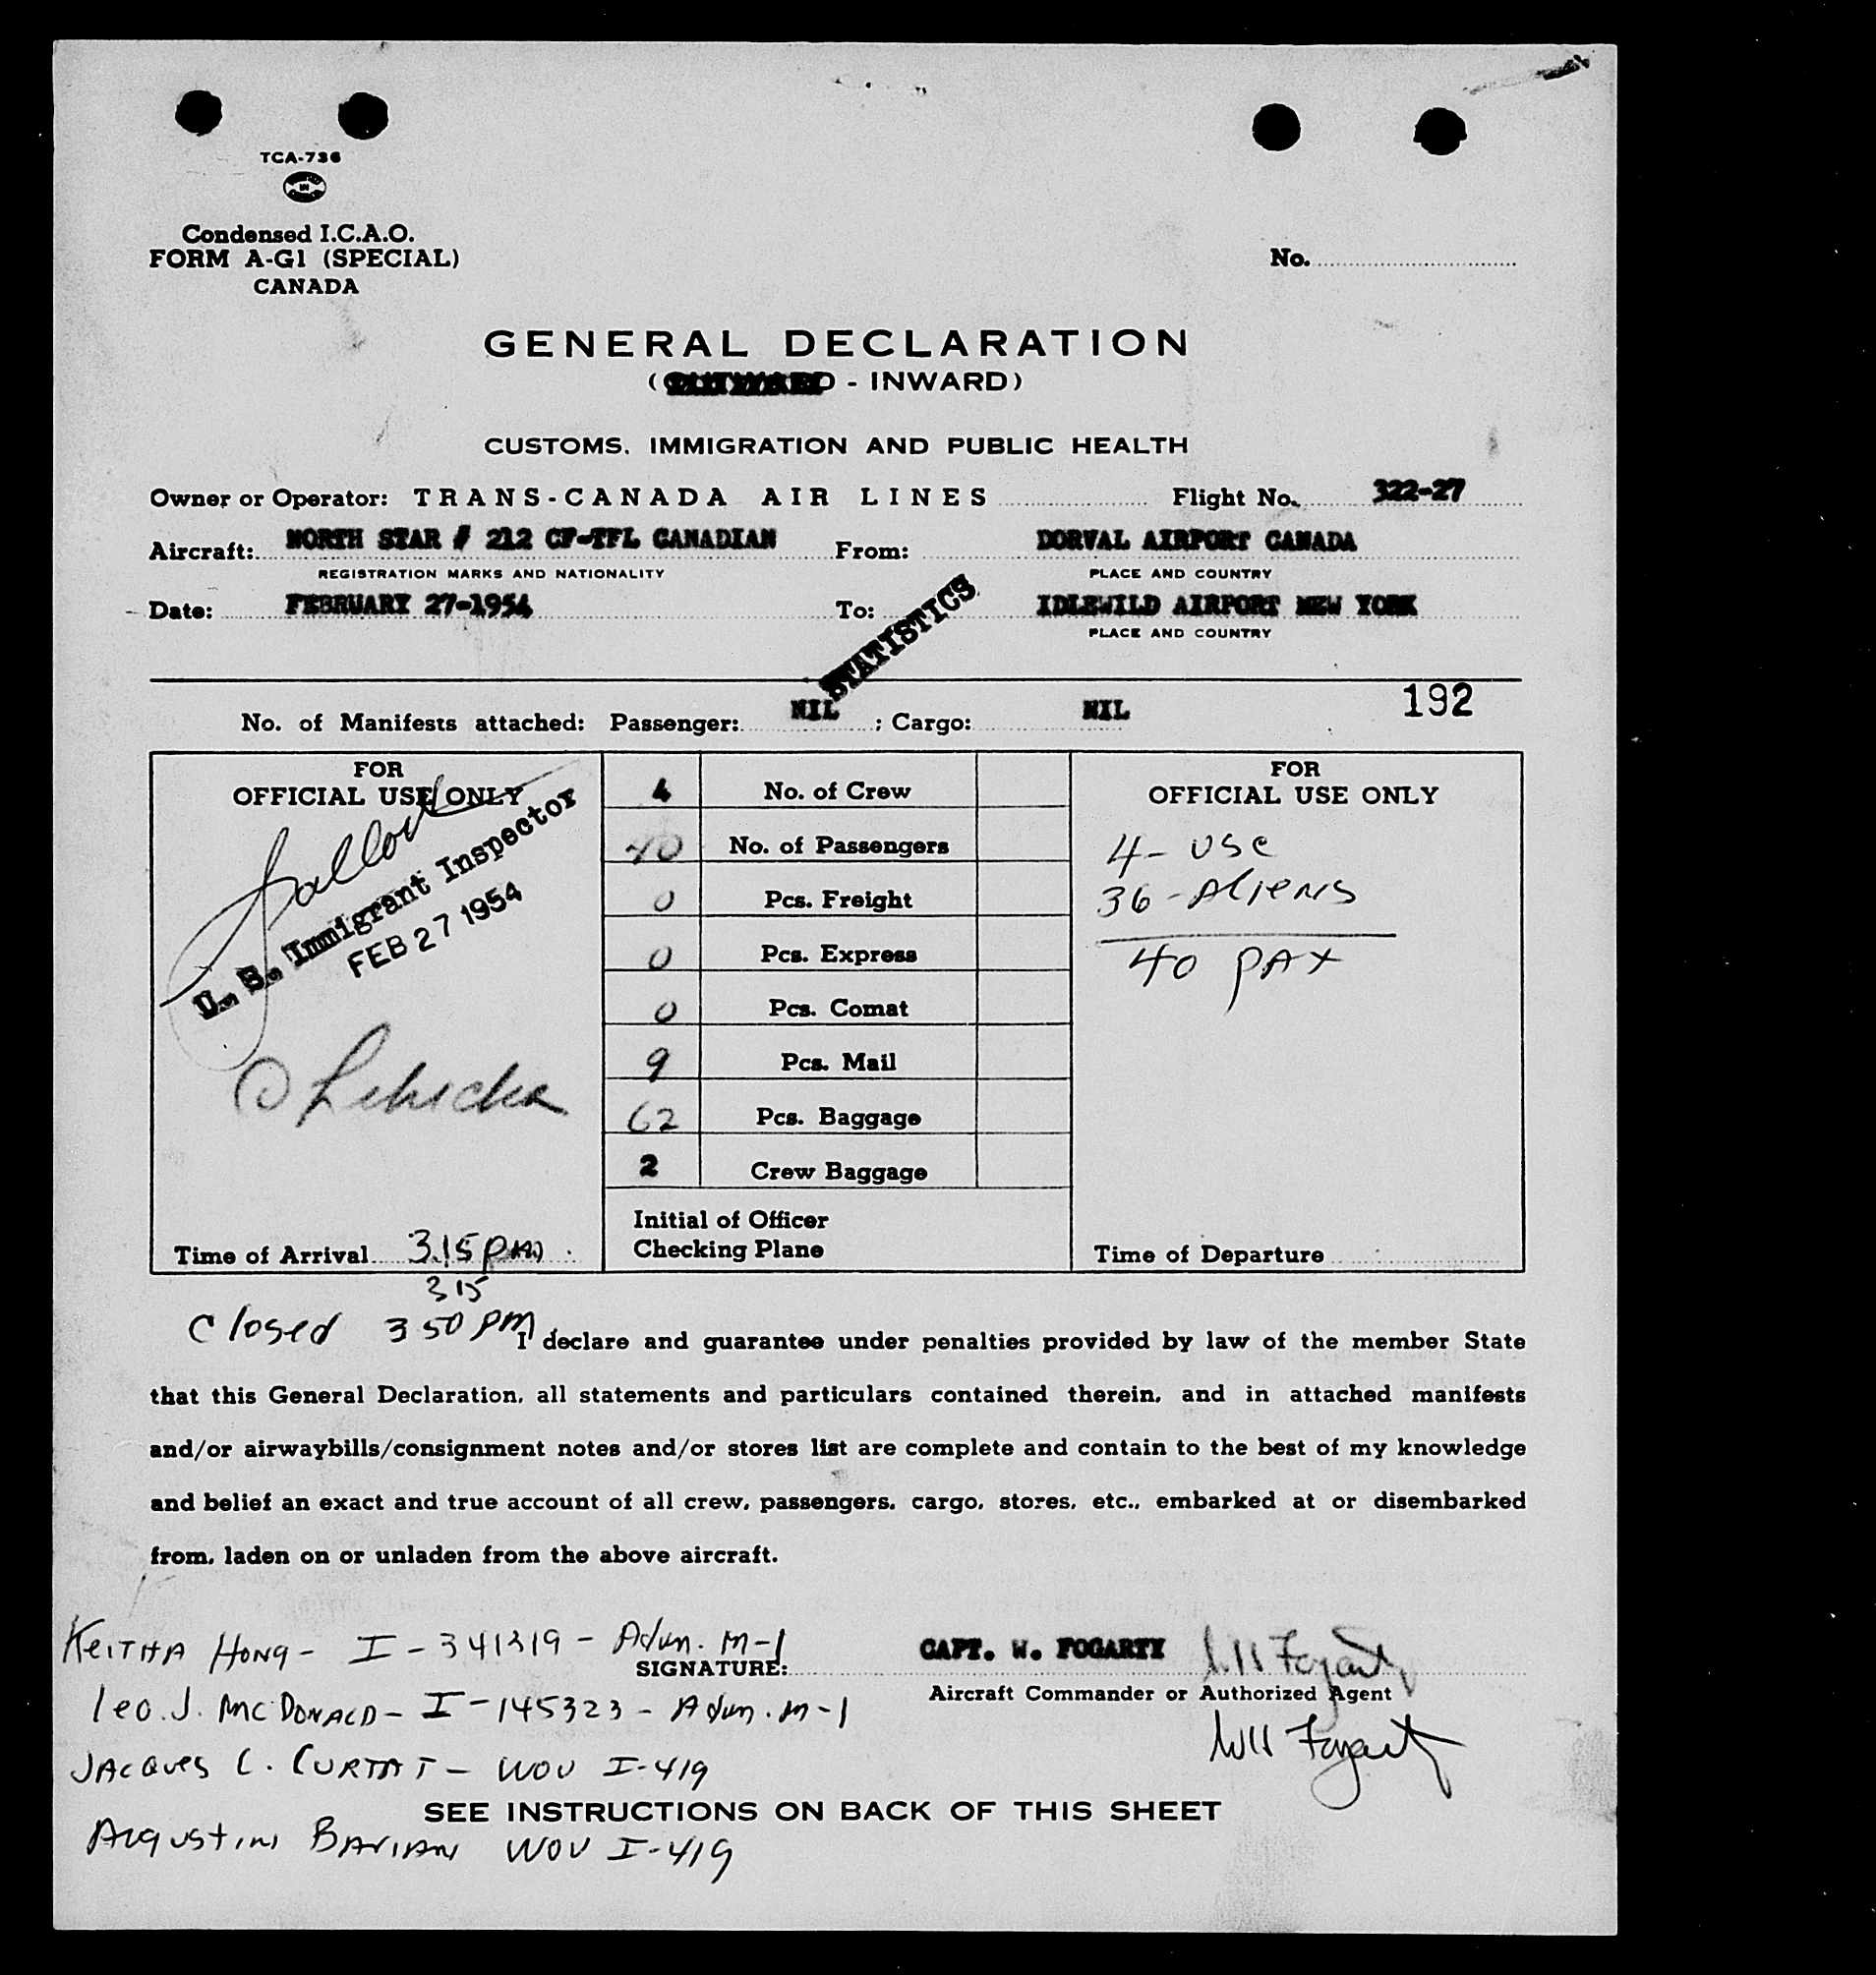 TCA-736
IN
Condensed I.C.A.O.
FORM A-G1 (SPECIAL)
CANADA
No.
GENERAL DECLARATION
( - INWARD)
CUSTOMS, IMMIGRATION AND PUBLIC HEALTH
Owner or Operator: TRANS-CANADA AIR LINES Flight No. 322-27
Aircraft: NORTH STAR # 212 CF-TFL CANADIAN From: DORVAL AIRPORT CANADA
REGISTRATION MARKS AND NATIONALITY PLACE AND COUNTRY
Date: FEBRUARY 27-1954 To: IDLEWILD AIRPORT NEW YORK
PLACE AND COUNTRY
STATISTICS
192
No. of Manifests attached: Passenger: NIL ; Cargo: NIL
FOR
OFFICIAL USE ONLY
U. S. Immigrant Inspector
FEB 27 1954
Time of Arrival 3.15 pm
3 15
4 No. of Crew
40 No. of Passengers
0 Pcs. Freight
0 Pcs. Express
0 Pcs. Comat
9 Pcs. Mail
62 Pcs. Baggage
2 Crew Baggage
Initial of Officer
Checking Plane
FOR
OFFICIAL USE ONLY
4 - USC
36 - Aliens
40 PAX
Time of Departure
Closed 3 50 PM
I declare and guarantee under penalties provided by law of the member State
that this General Declaration, all statements and particulars contained therein, and in attached manifests
and/or airwaybills/consignment notes and/or stores list are complete and contain to the best of my knowledge
and belief an exact and true account of all crew, passengers, cargo, stores, etc., embarked at or disembarked
from, laden on or unladen from the above aircraft.
KEITHA HONG - I - 341319 - Adm. M-1
SIGNATURE: CAPT. W. FOGARTY W Fogarty
Aircraft Commander or Authorized Agent
Leo. J. McDONALD - I - 145323 - Adm. M-1
W Fogarty
JACQUES C. CURTAT - WOV I-419
SEE INSTRUCTIONS ON BACK OF THIS SHEET
Augustin WOV I-419